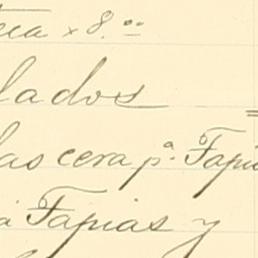 x 8.00
lados
las cera pª. Tapia
á Tapias y